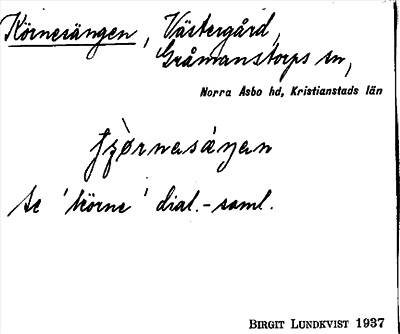 Körnesängen, Västergård,
Gråmanstorps sn,
Norra Åsbo hd, Kristianstads län
Se 'körne' dial.-saml.
BIRGIT LUNDKVIST 1937